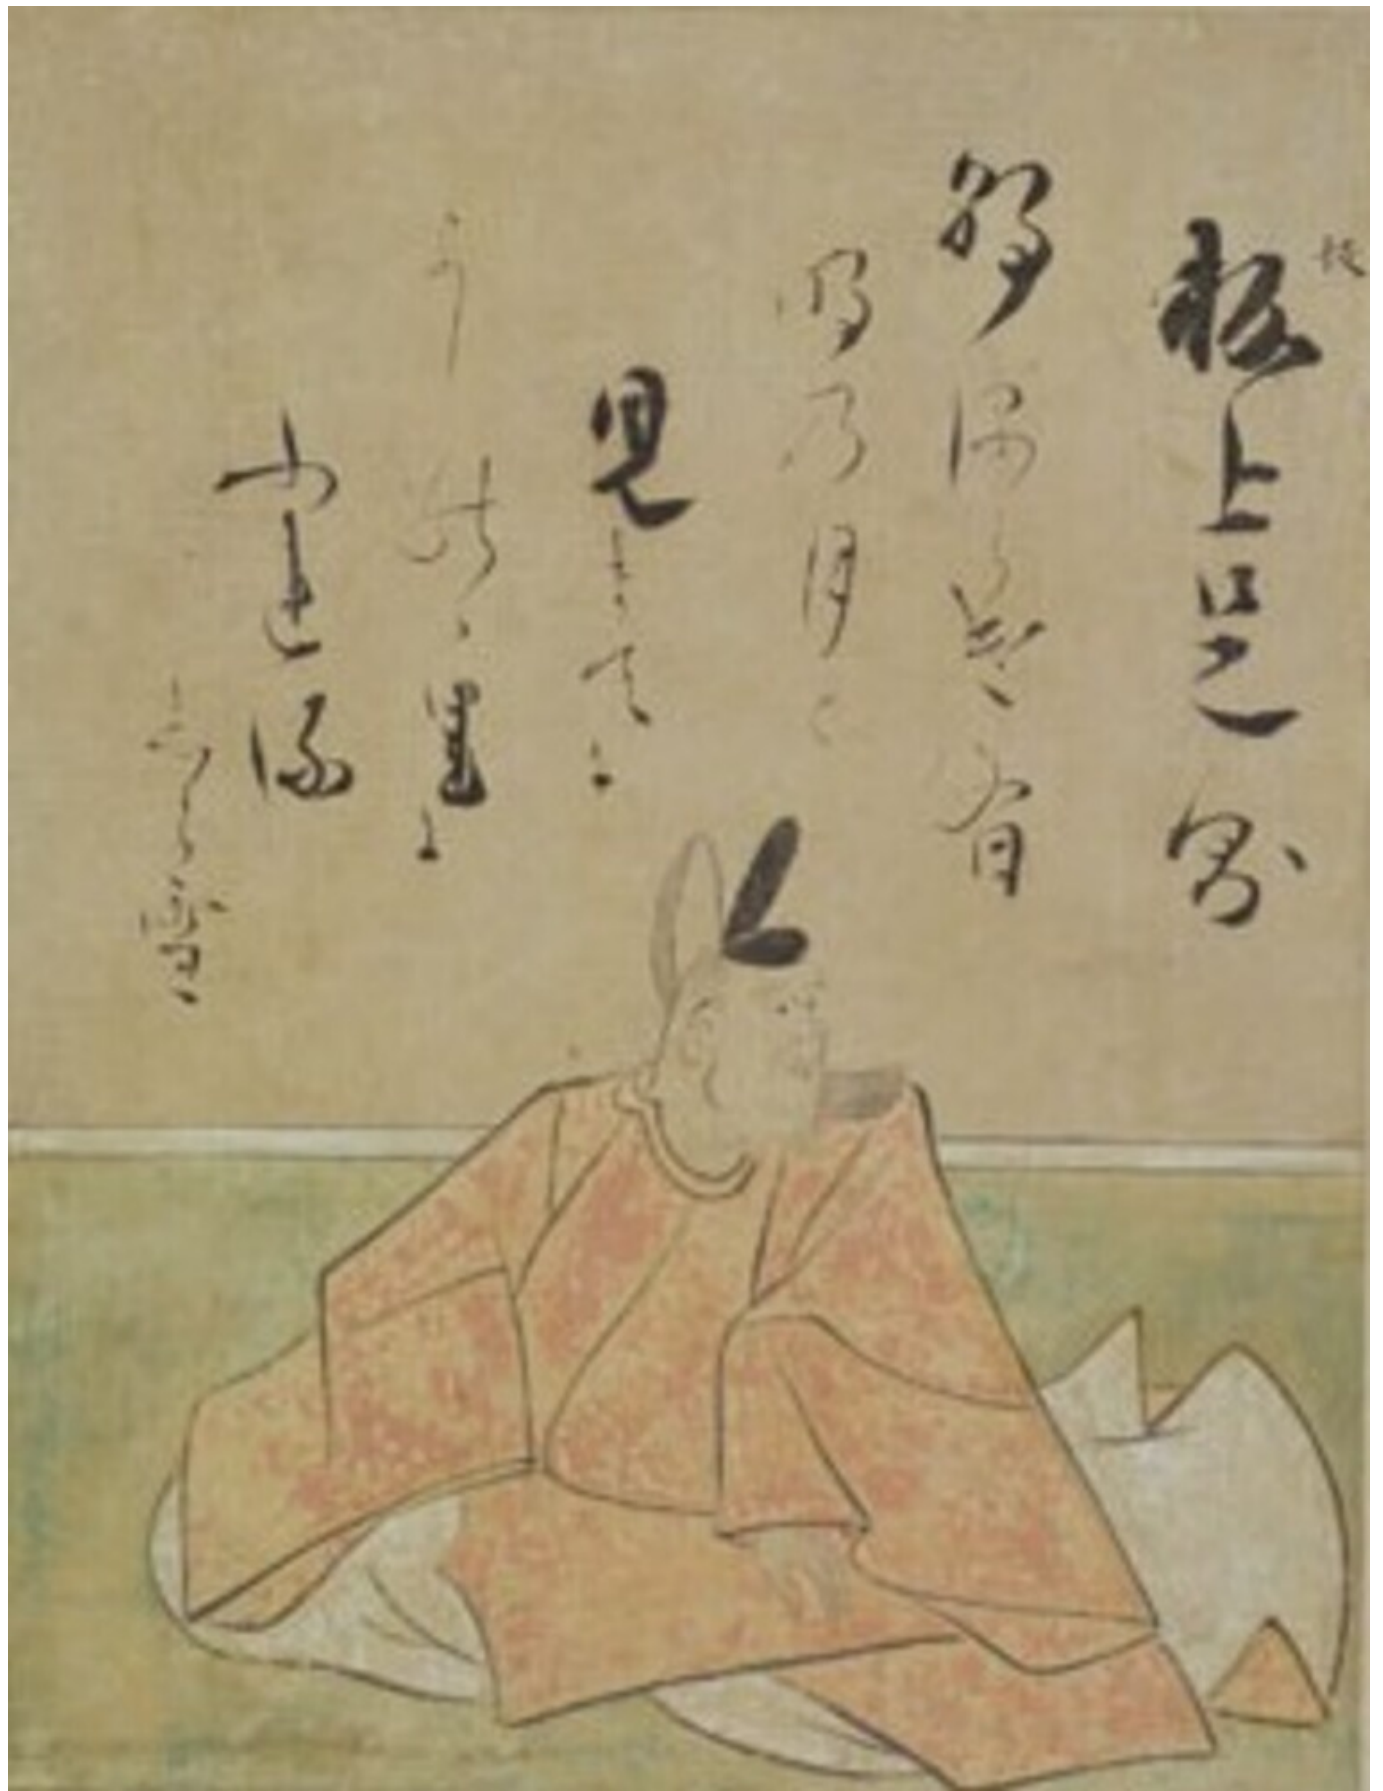 坂
板上是則
朝ほらけ有
明の月と
見るまてに
よしのゝ里に
ふれる
しら雪